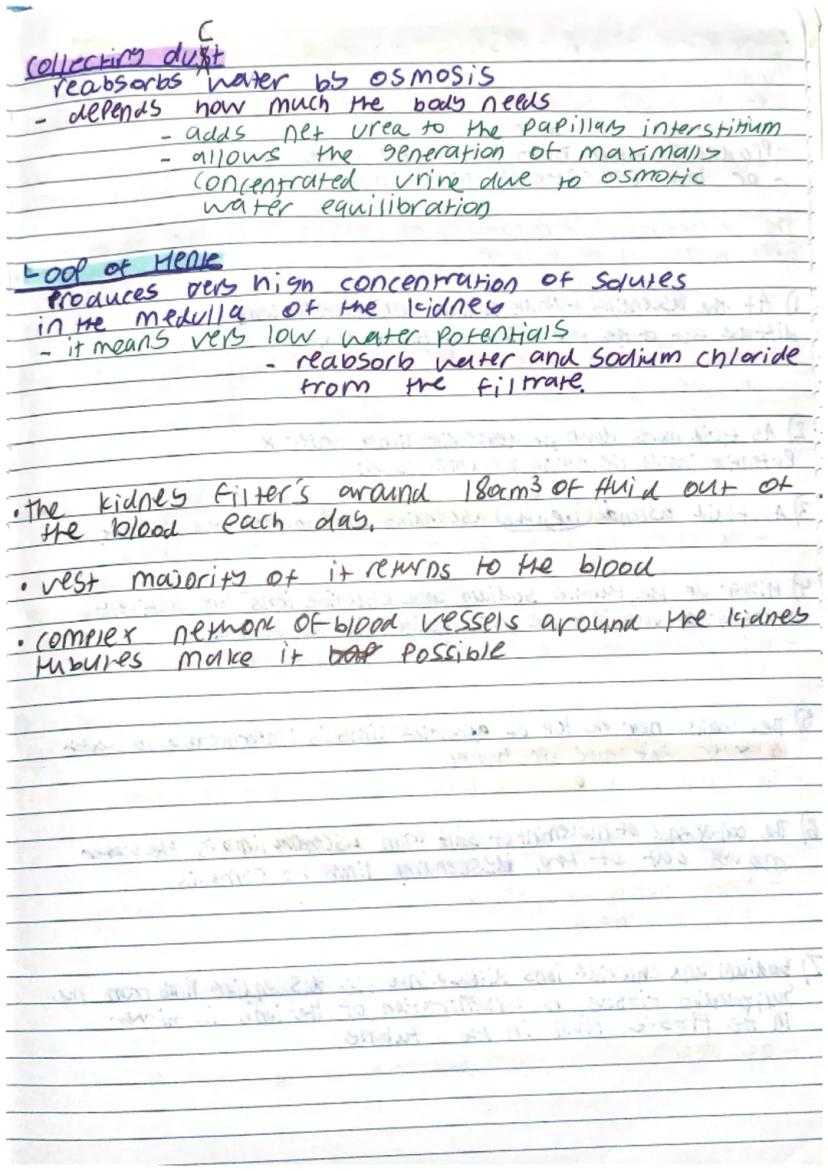 Collecting duct
reabsorbs water by osmosis
- depends how much the body needs
- adds net urea to the papillary interstitium
- allows the generation of maximally
concentrated urine due to osmotic
water equilibration
Loop of Henle
Produces very high concentration of solutes
in the medulla of the kidney
- it means very low water potentials
- reabsorb water and sodium chloride
from the filtrate.
• the kidney filter's around 180cm³ of fluid out of
the blood each day.
• vest majority of it returns to the blood
• complex network of blood vessels around the kidney
tubures make it possible